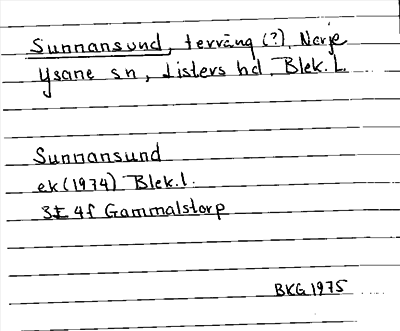 Sunnansund, terräng (?), Norje
Ysane sn, Listers hd. Blek. L.
Sunnansund
ek (1974) Blek. l.
3E 4f Gammalstorp
BKG 1975